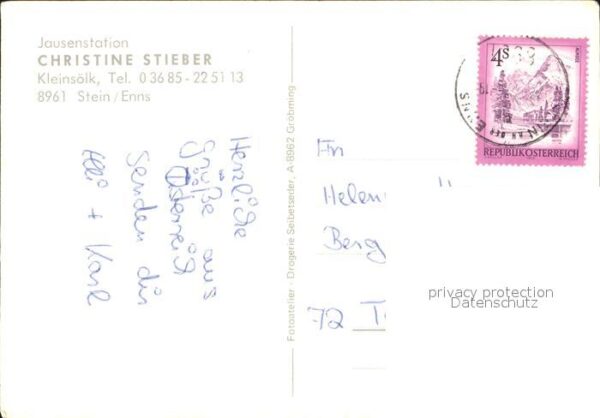 Jausenstation
CHRISTINE STIEBER
Kleinsölk, Tel. 0 36 85 - 22 51 13
8961 Stein/Enns
Herzliche
Grüße aus
Österreich
senden dir
Alli + Karl
Fotoatelier · Drogerie Seibetseder, A-8962 Gröbming
4S
REPUBLIK ÖSTERREICH
Helen
Berg
72
privacy protection
Datenschutz